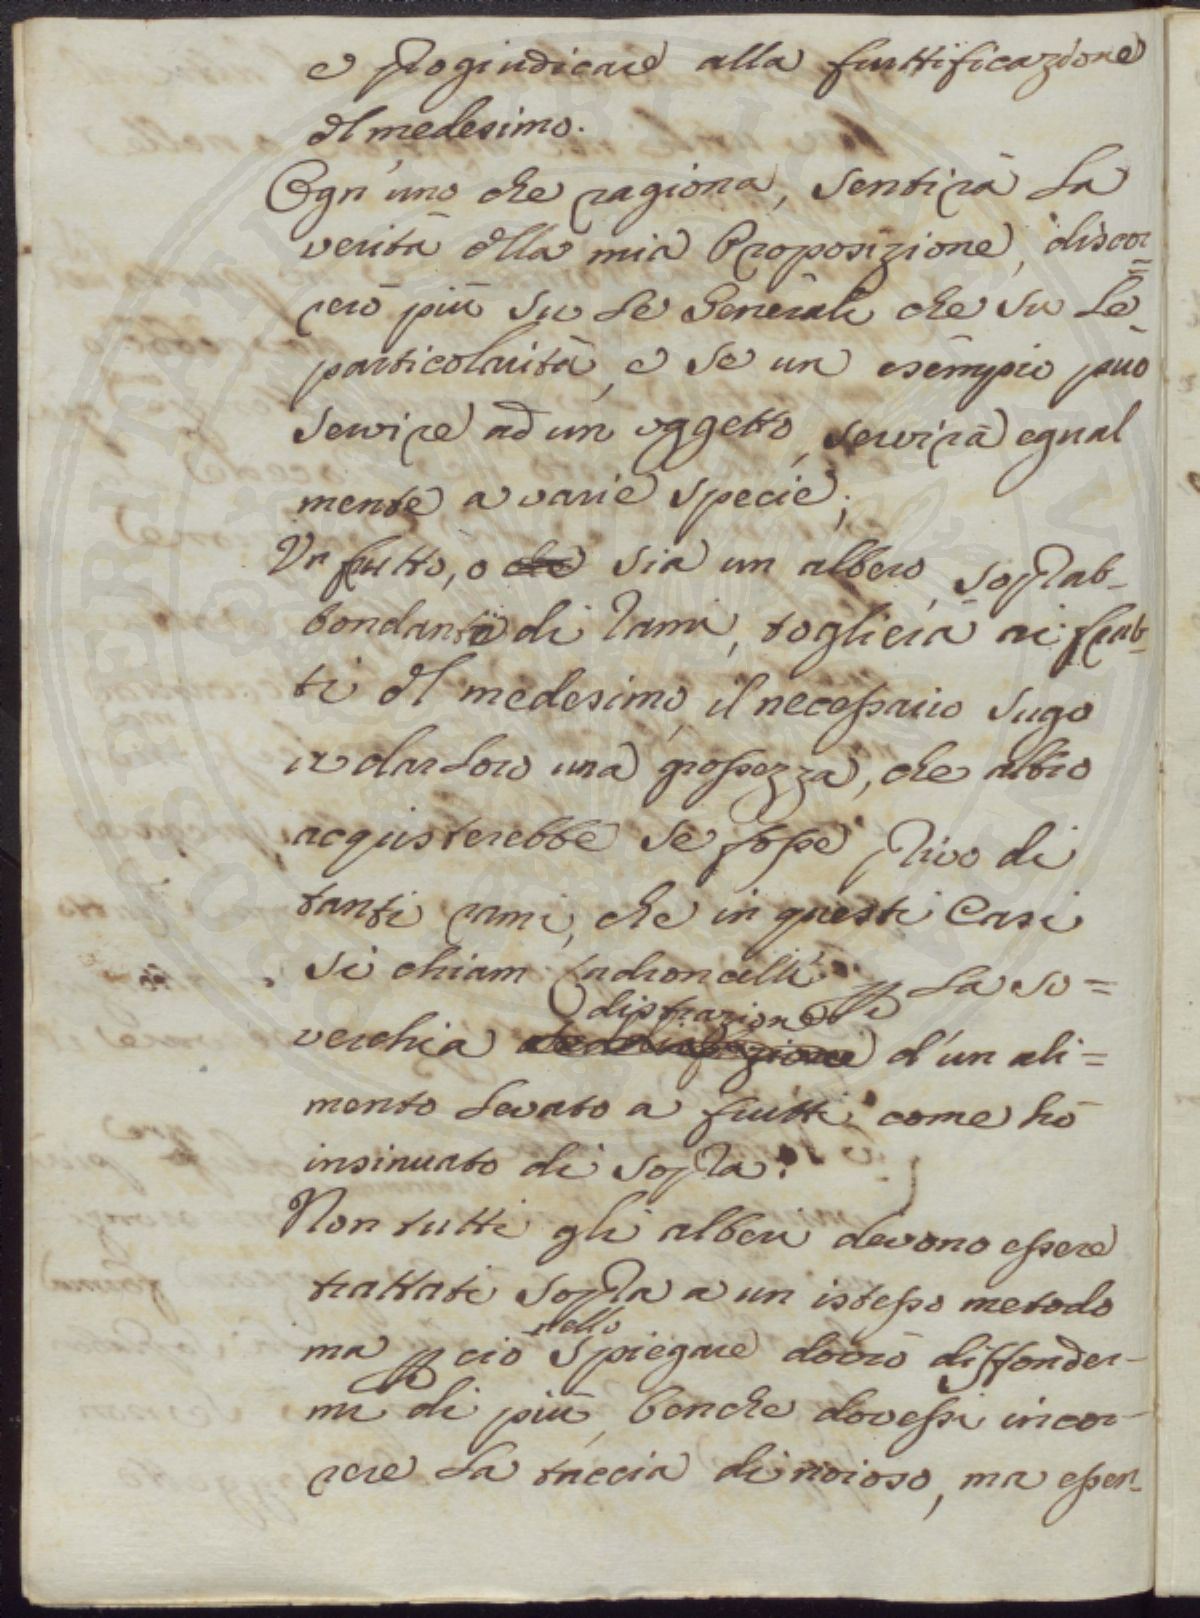 e Progiudicare alla fruttificazione
del medesimo.
Ogn'uno che ragiona, sentirà la
verità della mia Proposizione, discor=
rerò più su le Generali che su le
particolarità, e se un esempio può
servire ad un oggetto, servirà egual
mente a varie specie;
Un frutto, o che sia un albero, soprab-
bondante di rami, toglierà ai frut-
ti del medesimo, il necessario sugo
a dar loro una grossezza, che altro
acquisterebbe se fosse privo di
tanti rami, che in questi Casi
si chiam ladroncelli per la so=
distrazione
verchia d'un ali=
mento levato a frutti come hò
insinuato di sopra.
Non tutti gli alberi devono essere
trattati sopra a un istesso metodo
nello
ma per ciò spiegare dovrò diffonder-
mi di più, benche dovessi incor-
rere la taccia di noioso, ma essen-